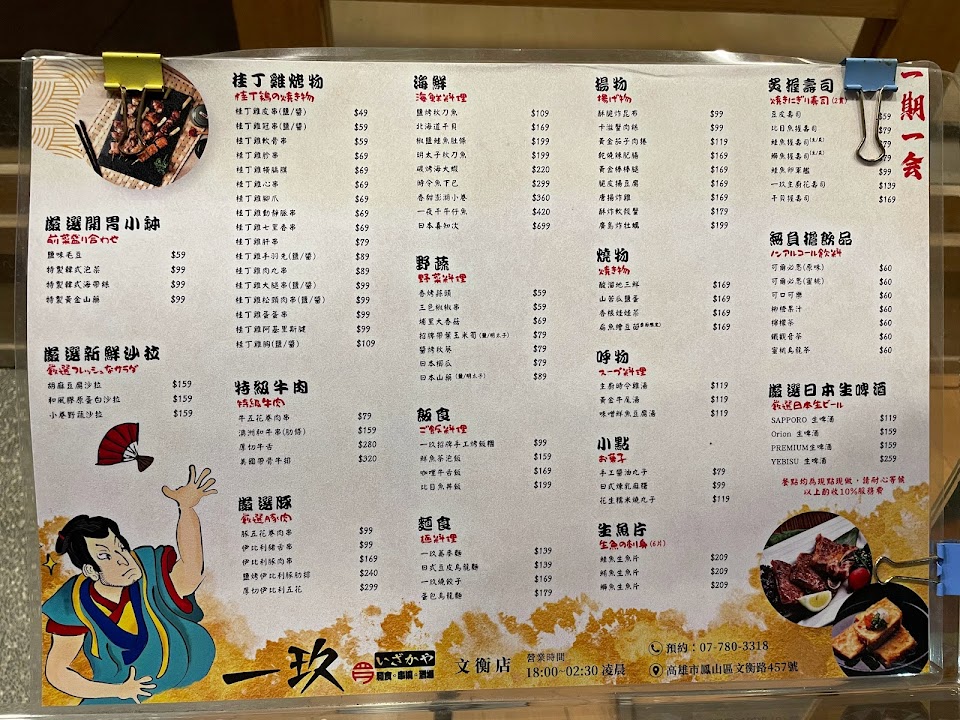 嚴選開胃小缽
前菜盛り合わせ
鹽味毛豆 $59
特製韓式泡菜 $99
特製韓式海帶絲 $99
特製黃金山藥 $99
嚴選新鮮沙拉
厳選フレッシュなサラダ
胡麻豆腐沙拉 $159
和風膠原蛋白沙拉 $159
小卷野蔬沙拉 $159
桂丁雞烤物
桂丁鶏の焼き物
桂丁雞皮串(鹽/醬) $49
桂丁雞冠串(鹽/醬) $59
桂丁雞軟骨串 $59
桂丁雞胗串 $69
桂丁雞橫膈膜 $69
桂丁雞心串 $69
桂丁雞腳爪 $69
桂丁雞動靜脈串 $69
桂丁雞七里香串 $69
桂丁雞肝串 $79
桂丁雞手羽先(鹽/醬) $89
桂丁雞肉丸串 $89
桂丁雞大腿串(鹽/醬) $99
桂丁雞松頸肉串(鹽/醬) $99
桂丁雞蛋蛋串 $99
桂丁雞阿基里斯腱 $99
桂丁雞胸(鹽/醬) $109
特級牛肉
特級牛肉
牛五花卷肉串 $79
澳洲和牛串(肋條) $159
厚切牛舌 $280
美國帶骨牛排 $320
嚴選豚
厳選豚肉
豚五花卷肉串 $99
伊比利豬舌串 $99
伊比利豚肉串 $169
鹽烤伊比利豚肋排 $240
厚切伊比利五花 $299
海鮮
海鮮料理
鹽烤秋刀魚 $109
北海道干貝 $169
椒鹽鮭魚肚條 $199
明太子秋刀魚 $199
碳烤海大蝦 $220
時令魚下巴 $299
香甜澎湖小卷 $360
一夜干午仔魚 $420
日本喜知次 $699
野蔬
野菜料理
香烤蒜頭 $59
三色椒椒串 $59
埔里大香菇 $69
招牌帶葉玉米筍(鹽/明太子) $79
醬烤秋葵 $79
日本櫛瓜 $79
日本山藥(鹽/明太子) $89
飯食
ご飯料理
一玖招牌手工烤飯糰 $99
鮮魚茶泡飯 $159
咖哩牛舌飯 $169
比目魚丼飯 $199
麵食
麺料理
一玖蕎麥麵 $139
日式豆皮烏龍麵 $139
一玖燒餃子 $169
蛋包烏龍麵 $179
揚物
揚げ物
酥脆炸昆布 $99
卡滋蟹肉絲 $99
黃金茄子肉捲 $119
乾燒辣肥腸 $169
黃金棒棒腿 $169
脆皮揚豆腐 $169
唐揚炸雞 $169
酥炸軟殼蟹 $179
廣島炸牡蠣 $199
燒物
焼き物
酸溜地三鮮 $169
山苦瓜鹽蛋 $169
香根娃娃菜 $169
扁魚燴豆苗 $169
呼物
スープ料理
主廚時令雞湯 $119
黃金牛尾湯 $119
味噌鮮魚豆腐湯 $119
小點
お菓子
手工醬油丸子 $79
日式爆乳麻糬 $99
花生糯米燒丸子 $119
生魚片
生魚の刺身(6片)
鮭魚生魚片 $209
鮪魚生魚片 $209
鰤魚生魚片 $209
炙握壽司
焼きにぎり寿司(2貫)
豆皮壽司 $59
比目魚握壽司 $79
鮭魚握壽司(生/炙) $119
鰤魚握壽司(生/炙) $119
鮭魚卵軍艦 $99
一玖主廚花壽司 $139
干貝握壽司 $169
無負擔飲品
ノンアルコール飲料
可爾必思(原味) $60
可爾必思(蜜桃) $60
可口可樂 $60
柳橙果汁 $60
檸檬茶 $60
鐵觀音茶 $60
蜜桃烏龍茶 $60
嚴選日本生啤酒
厳選日本生ビール
SAPPORO 生啤酒 $119
Orion 生啤酒 $159
PREMIUM生啤酒 $159
YEBISU 生啤酒 $259
餐點均為現點現做，請耐心等候
以上酌收10%服務費
一期一会
一玖
いざかや
文衡店
營業時間
18:00~02:30 凌晨
預約：07-780-3318
高雄市鳳山區文衡路457號